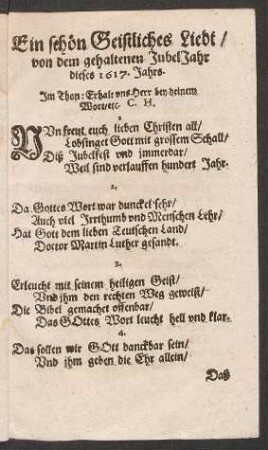 Ein schön Geistliches Liedt /
von dem gehaltenen JubelJahr
dieses 1617. Jahrs.
Im Thon: Erhalt vns Herr bey deinem
Wort/etc. C. H.
1
NVn frewt euch lieben Christen all/
Lobsinget Gott mit grossem Schall/
Diß Jubelfest vnd jmmerdar/
Weil sind verlauffen hundert Jahr.
2.
Da Gottes Wort war dunckel sehr/
Auch viel Irrthumb vnd Menschen Lehr/
Hat Gott dem lieben Teutschen Land/
Doctor Martin Luther gesandt.
3.
Erleucht mit seinem heiligen Geist/
Vnd ihm den rechten Weg geweist/
Die Bibel gemachet offenbar/
Das GOttes Wort leucht hell vnd klar.
4.
Das sollen wir GOtt danckbar sein/
Vnd ihm geben die Ehr allein/
Daß